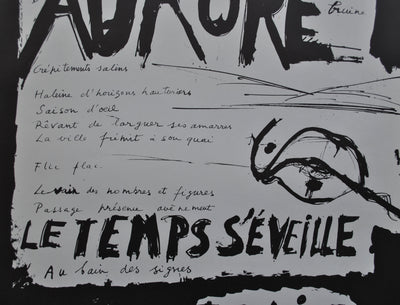 AURORE
bruine
Crépitements satins
Haleine d'horizons hauturiers
Saison d'oeil
Rêvant de larguer ses amarres
La ville frémit à son quai
Flic flac
Le des nombres et figures
Passage présence avènement
LE TEMPS S'ÉVEILLE
Au bain des signes